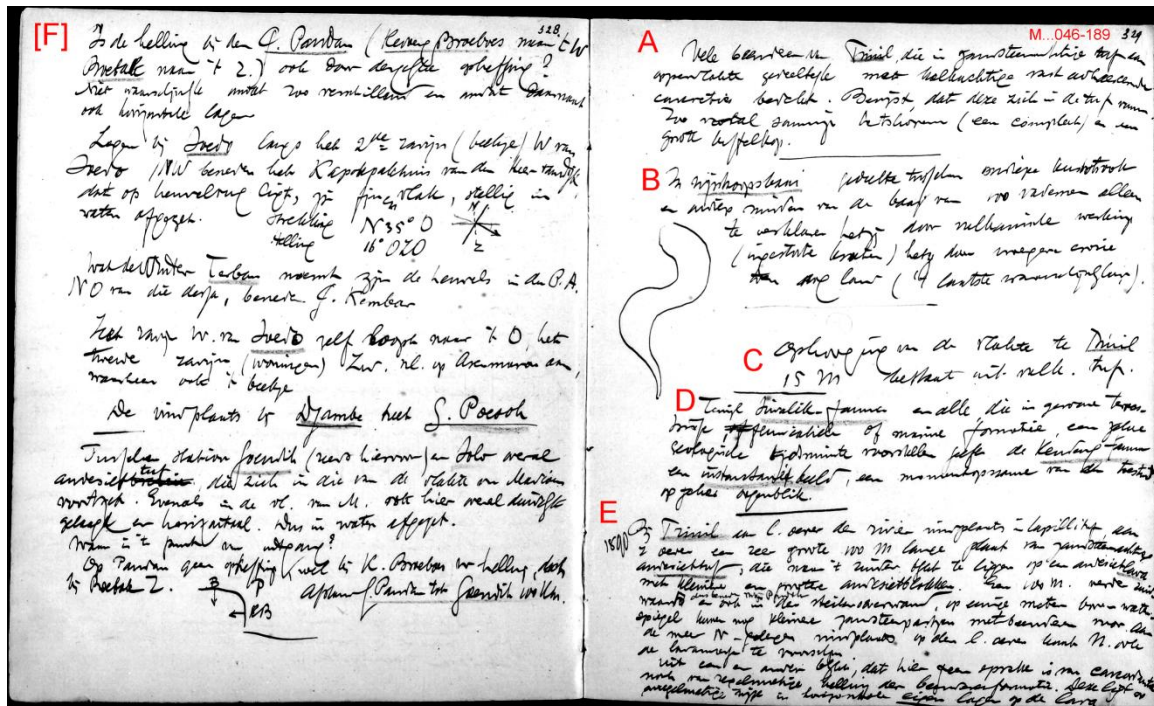 [F]
328
Is de helling bij den G. Pandan (Kedung Broebus naar 't W
Broebak naar 't Z.) ook door dezelfde opheffing?
Niet waarschijnlijk omdat zoo verschillend en omdat daarnaast
ook horizontale lagen
Lagen bij Soedo langs het 2de ravijn (beekje) W van
Soedo NW beneden het Kapokpakhuis van den Heer
dat op heuvelrug ligt, zijn fijn, vlak, stellig in
water afgezet. Strekking N35°O N
Helling 16° OZO Z
Wat der Terban noemt zijn de heuvels in de P.A.
NO van die dessa, beneden G. Kembar
Het ravijn W. van Soedo zelf loopt naar 't O, het
tweede ravijn (woningen) ZW. nl. op aan,
waarheen ook 't beekje
De vindplaats bij Djambe heet G. Potjok
Tusschen station Goendih (zeer hierom) en Solo overal
andesiet tuf, die zich in die van de vlakte van Madioen
voortzet. Evenals in de vl. van M. ook hier overal duidelijk
gelaagd en horizontaal. Dus in water afgezet.
Waar is 't punt van uitgang?
Op Pandan geen opheffing, wel bij K. Broebus W helling, doch
bij Z. B P Afstand G. Pandan tot Goendih 100 Km.
KB
M...046-189 329
A
Vele beenderen van Trinil die in ganzsteenachtige tuf
oppervlakte gedeeltelijk met kalkachtige vast adhaereerende
concretie bedekt. Bewijst, dat deze zich in de tuf
Zoo vooral sommige hertshorens (een compleet) en een
groote buffelkop.
B
In Wijnkoopsbaai gedeelte tusschen ondiepe kuststrook
en ondiep midden van de baai van 100 vademen alleen
te verklaren hetzij door vulkanische werking
(ingestorte kraters) hetzij door vroegere erosie
van land ('t laatste waarschijnlijker).
C
Ophooging van de vlakte te Trinil
15 M bestaat uit vulk. tuf.
D
Terwijl Siwalik-fauna en alle die in gewone terres-
trische, fluviatiele of mariene formatie, een geheele
geologische tijdruimte voorstellen geeft de Kendeng-fauna
een instantané beeld, een momentopname van den toestand
op zeker oogenblik.
E
1890 Bij Trinil aan l. oever der rivier vindplaats in lapillituf aan
r oever een zeer groote 100 M lange plaat van ganzsteenachtige
andesiettuf, die naar 't zuiden blijkt te liggen op een andesietlava
met kleine en groote andesietblokken. Een 100 M. verder zuid-
waarts en ook in den steilen oeverwand, op eenige meters boven water-
spiegel komen nog kleinere met beenderen voor. Aan
de meer N-gelegen vindplaats op den l. oever komt N. ook
de te voorschijn
Uit een en ander blijkt, dat hier geen sprake is van concordantie
noch van regelmatige helling der beenderenformatie. Deze ligt op
onregelmatige wijze in horizontale eigen lagen op de lava